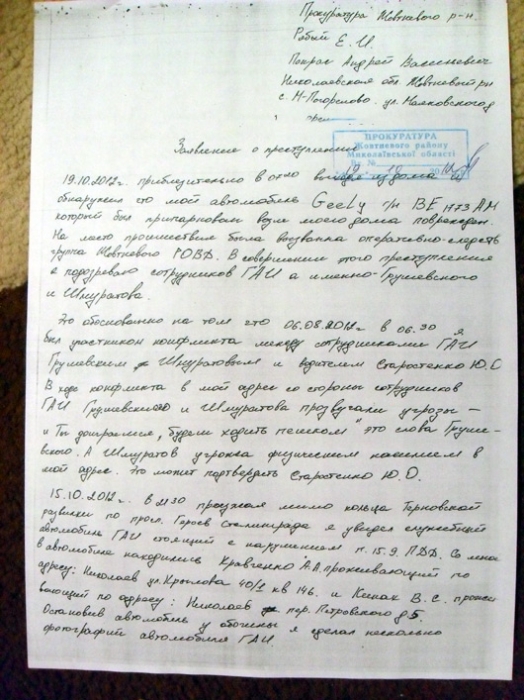 Прокуратура Жовтневого р-н.
Рабый Е. И.
Покрас Андрей Васильевич
Николаевская обл. Жовтневый р-н
с. М-Погорелово. ул. Маяковского д
Заявление о преступлении
ПРОКУРАТУРА
Жовтневого району
Миколаївської області
Вх. №
19.10.2012г. приблизительно в около выйдя из дома я
обнаружил что мой автомобиль Geely г/н ВЕ 1173 АМ
который был припаркован возле моего дома поврежден.
На место происшествие была вызванна оперативно-следств
группа Жовтневого РОВД. В совершении этого преступления
я подозреваю сотрудников ГАИ а именно-Грушевского
и Шмуратова.
Это обоснованно на том что 06.08.2012г в 06.30 я
был участником конфликта между сотрудниками ГАИ
Грушевским Шмуратовым и водителем Старостенко Ю.О
В ходе конфликта в мой адрес со стороны сотрудников
ГАИ Грушевского и Шмуратова прозвучали угрозы –
„Ты доиграешся, будеш ходить пешком" это слова Груше-
вского. А Шмуратов угрожал физическим насилием в
мой адрес. Это может подтвердить Старостенко Ю.О.
15.10.2012г. в 2130 проезжая мимо кольца Терновской
развилки по просп. Героев Сталинграда я увидел служебный
автомобиль ГАИ стоящий с нарушением п. 15.9. ПДД. Со мной
в автомобиле находились Кравченко А.А. проживающий по
адресу: Николаев ул. Крылова 40/1 кв 146. и Кинах В.С. прожи
вающий по адресу: Николаев пер. Петровского д 5.
Остановив автомобиль у обочины я сделал несколько
фотографий автомобиля ГАИ